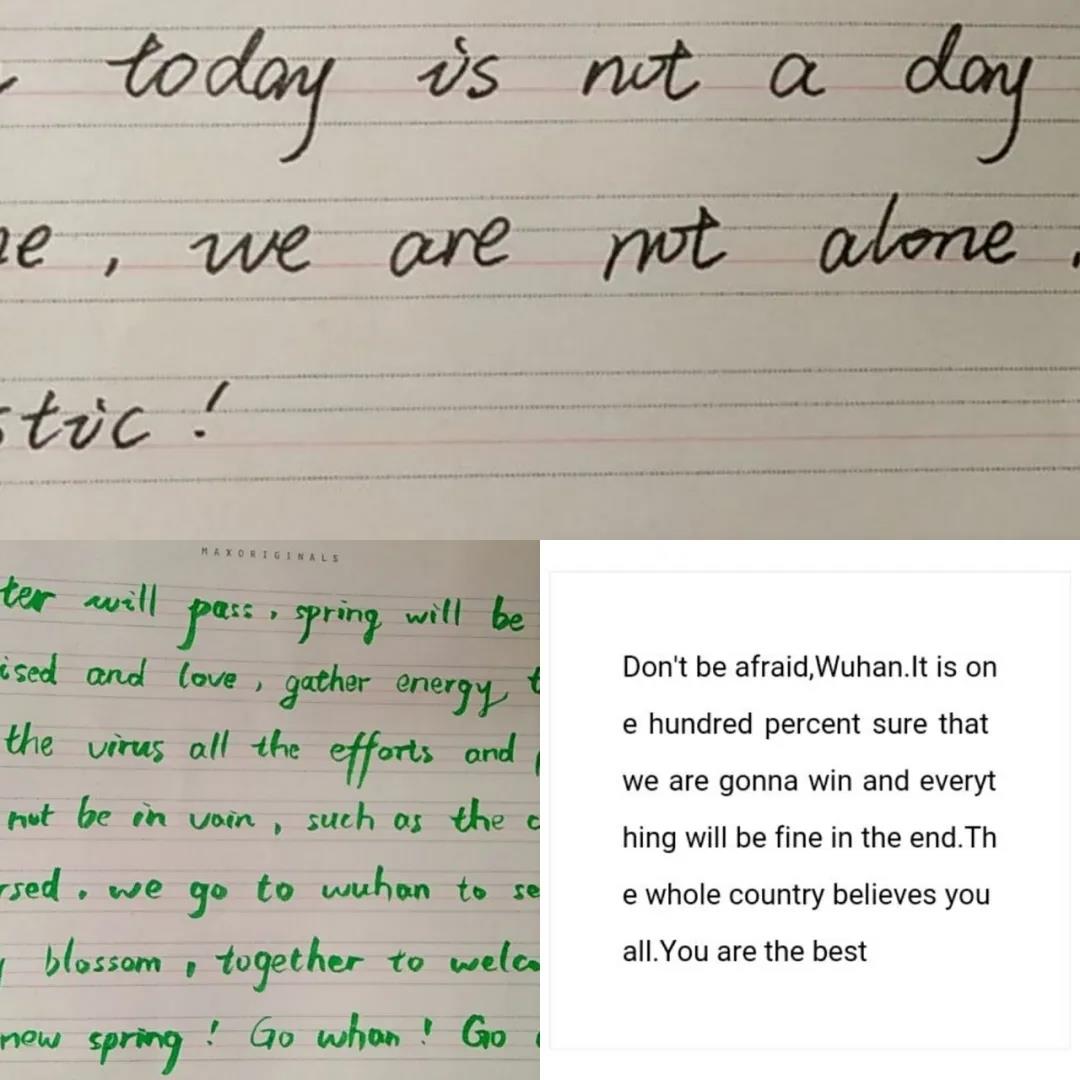 today is not a day
, we are not alone.
!
MAXORIGINALS
will pass, spring will be
and love, gather energy
the virus all the efforts and
not be in vain, such as the
. we go to wuhan to
blossom, together to
new spring! Go whan! Go
Don't be afraid,Wuhan.It is on
e hundred percent sure that
we are gonna win and everyt
hing will be fine in the end.Th
e whole country believes you
all.You are the best